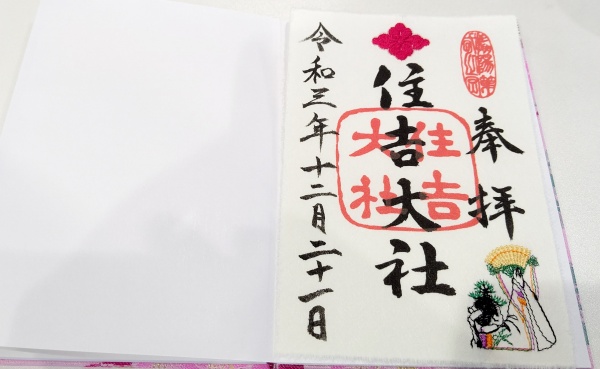 奉拝
住吉大社
住吉
大社
令和三年十二月二十一日